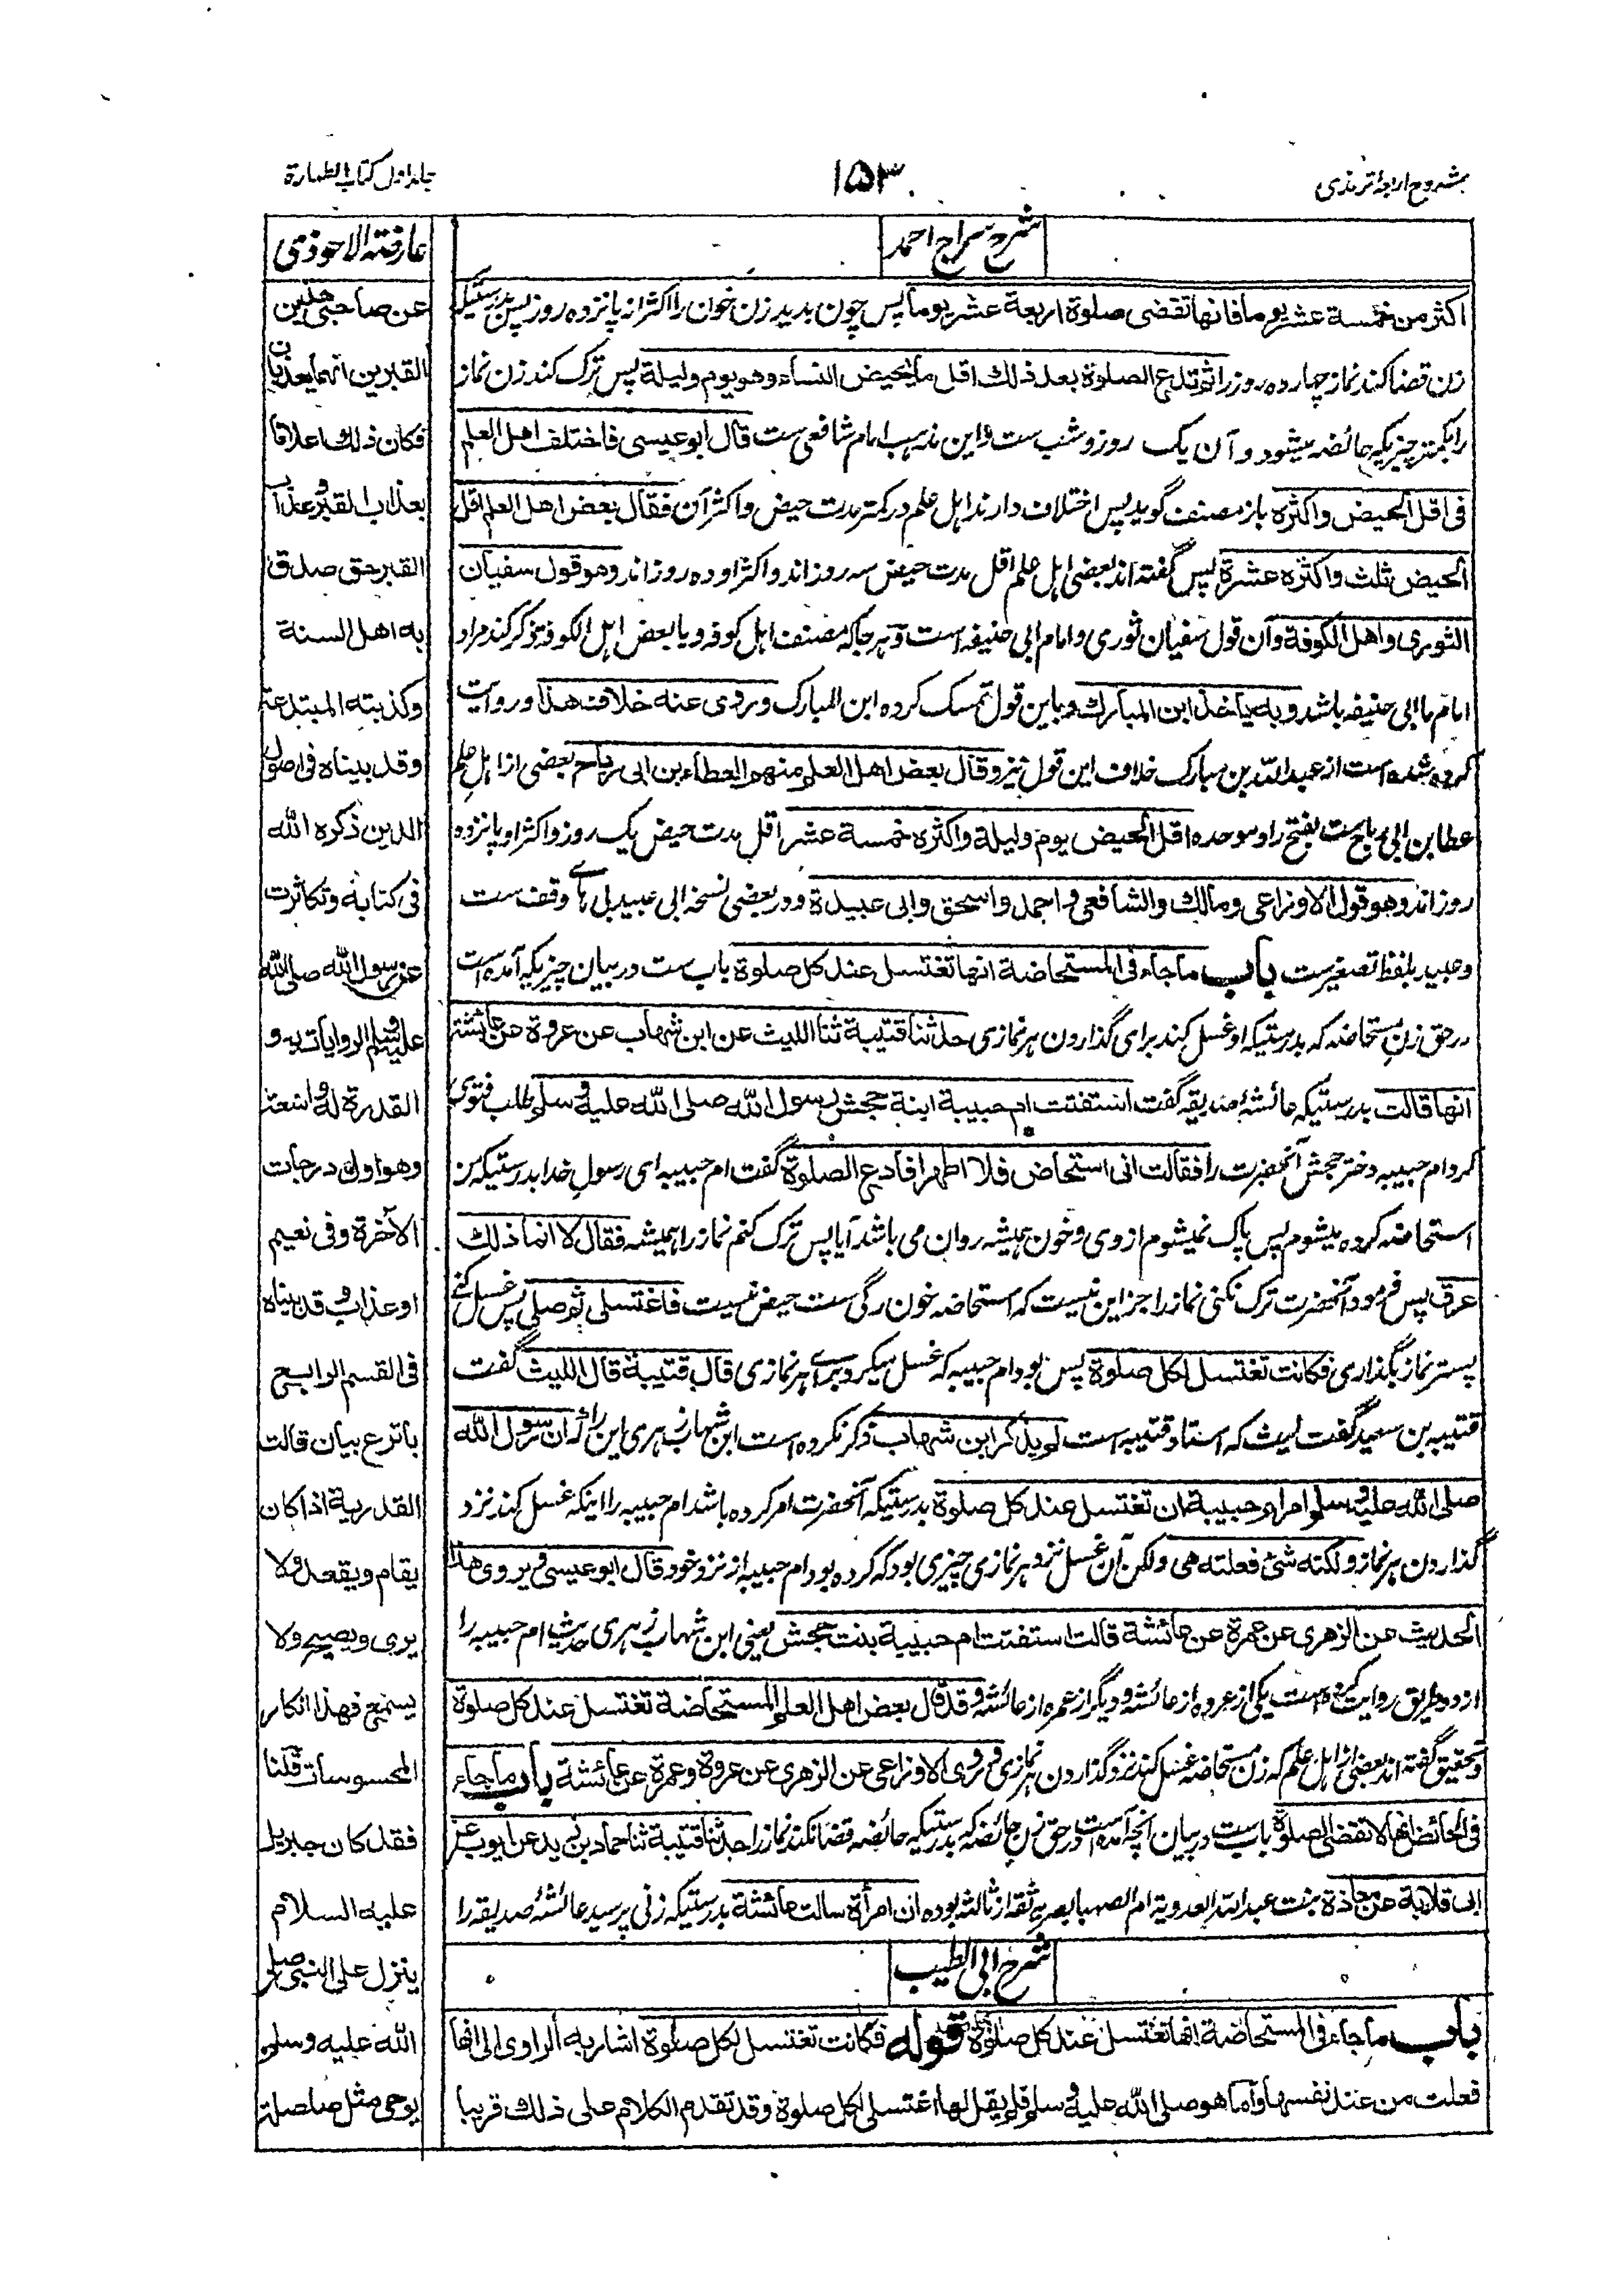 شروح اربعۂ ترمذی
۱۵۳
جلد اول کتاب الطهارة
شرح سراج احمد
اکثر من خمسة عشر یوما فانها تقضی صلوة اربعة عشر یوما پس چون بدید زن خون را اکثر از پانزده روز پس بدرستیکه
زن قضا کند نماز چهارده روز را ثم تدع الصلوة بعد ذلك اقل ما یحیض النساء وهو یوم ولیلة پس ترک کند زن نماز
را بکمتر چیزیکه حائضه میشود و آن یک روز و شب ست و این مذهب امام شافعی ست قال ابو عیسی فاختلف اهل العلم
فی اقل الحیض واکثره باز مصنف گوید پس اختلاف دارند اهل علم در کمتر مدت حیض و اکثر آن فقال بعض اهل العلم اقل
الحیض ثلث واکثره عشرة پس گفته اند بعضی اهل علم اقل مدت حیض سه روز اند و اکثر او ده روز اند وهو قول سفیان
الثوری واهل الکوفة و آن قول سفیان ثوری و امام ابی حنیفه است و هر جا که مصنف اهل کوفه و یا بعض اهل الکوفة ذکر کند مراد
امام ما ابی حنیفه باشد وبه یاخذ ابن المبارك و باین قول تمسک کرده ابن المبارک وروی عنه خلاف هذا و روایت
کرده شده است از عبد الله بن مبارک خلاف این قول نیز وقال بعض اهل العلم منهم العطاء بن ابی رباح بعضی از اهل علم
عطا بن ابی رباح ست بفتح را و موحده اقل الحیض یوم ولیلة واکثره خمسة عشر اقل مدت حیض یک روز و اکثر او پانزده
روز اند وهو قول الاوزاعی ومالك والشافعی واحمد واسحق وابی عبیدة و در بعضی نسخه ابی عبید بل هاے وقف ست
و عبید بلفظ تصغیر ست باب ما جاء فی المستحاضة انها تغتسل عند کل صلوة باب ست در بیان چیزیکه آمده است
در حق زن مستحاضه که بدرستیکه او غسل کند برای گذاردن هر نمازی حدثنا قتیبة ثنا اللیث عن ابن شهاب عن عروة عن عائشة
انها قالت بدرستیکه عائشهٔ صدیقه گفت استفتت ام حبیبة ابنة جحش رسول الله صلی الله علیه وسلم طلب فتوی
کرد ام حبیبه دختر جحش آنحضرت را فقالت انی استحاض فلا اطهر افادع الصلوة گفت ام حبیبه ای رسول خدا بدرستیکه من
استحاضه کرده میشوم پس پاک نمیشوم از وی و خون همیشه روان می باشد آیا پس ترک کنم نماز را همیشه فقال لا انما ذلك
عرق پس فرمود آنحضرت ترک نکنی نماز را جز این نیست که استحاضه خون رگی ست حیض نیست فاغتسلی ثم صلی پس غسل کنے
پستر نماز بگذاری فکانت تغتسل لکل صلوة پس بود ام حبیبه که غسل میکرد براے هر نمازی قال قتیبة قال اللیث گفت
قتیبه بن سعید گفت لیث که استاد قتیبه است لم یذکر ابن شهاب ذکر نکرده است ابن شهاب زهری این را ان رسول الله
صلی الله علیه وسلم امر ام حبیبة ان تغتسل عند کل صلوة بدرستیکه آنحضرت امر کرده باشد ام حبیبه را اینکه غسل کند نزد
گذاردن هر نماز ولکنه شئ فعلته هی ولکن آن غسل نزد هر نمازی چیزی بود که کرده بود ام حبیبه از نزد خود قال ابو عیسی ویروی هذا
الحدیث عن الزهری عن عمرة عن عائشة قالت استفتت ام حبیبة بنت جحش یعنی ابن شهاب زهری حدیث ام حبیبه را
از دو طریق روایت کرده است یکی از عروه از عائشه و دیگر از عمره از عائشه وقد قال بعض اهل العلم المستحاضة تغتسل عند کل صلوة
و تحقیق گفته اند بعضی از اهل علم که زن مستحاضه غسل کند نزد گذاردن هر نمازی وروی الاوزاعی عن الزهری عن عروة وعمرة عن عائشة باب ما جاء
فی الحائض انها لا تقضی الصلوة باب ست در بیان آنچه آمده است در حق زن حائضه که بدرستیکه حائضه قضا نکند نماز را حدثنا قتیبة ثنا حماد بن زید عن ایوب عن
ابی قلابة عن معاذة بنت عبد الله العدویة ام الصهبا بصریه ثقة از ثالثه بوده ان امرأة سالت عائشة بدرستیکه زنی پرسید عائشهٔ صدیقه را
شرح ابی الطیب
باب ما جاء فی المستحاضة انها تغتسل عند کل صلوة قوله فکانت تغتسل لکل صلوة اشار به الراوی الی انها
فعلت من عند نفسها واما هو صلی الله علیه وسلم فلم یقل لها اغتسلی لکل صلوة وقد تقدم الکلام علی ذلك قریبا
عارضة الاحوذی
عن صاحبی هذین
القبرین انهما یعذبان
فکان ذلك اعلاما
بعذاب القبر وعذاب
القبر حق صدق
به اهل السنة
وکذبته المبتدعة
وقد بیناه فی اصول
الدین ذکره الله
فی کتابه وتکاثرت
عن رسول الله صلی الله
علیه وسلم الروایات به و
القدرة له واسعة
وهو اول درجات
الآخرة وفی نعیم
او عذاب وقد بیناه
فی القسم الرابع
باترع بیان قالت
القدریة اذا کان
یقام ویقعد ولا
یری ویصیح ولا
یسمع فهذا انکار
المحسوسات قلنا
فقد کان جبریل
علیه السلام
ینزل علی النبی صلی
الله علیه وسلم
یوحی مثل صلصلة